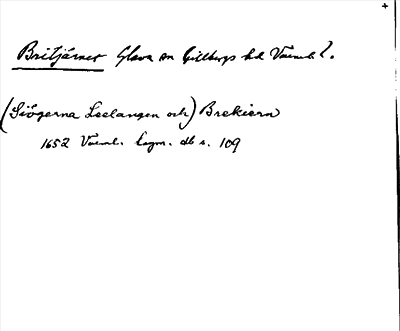 Britjärnet Glava sn Gillbergs hd Värml.
(Siögerna Leelangen och) Brekiern
1652 Värml. lagm. db s. 109